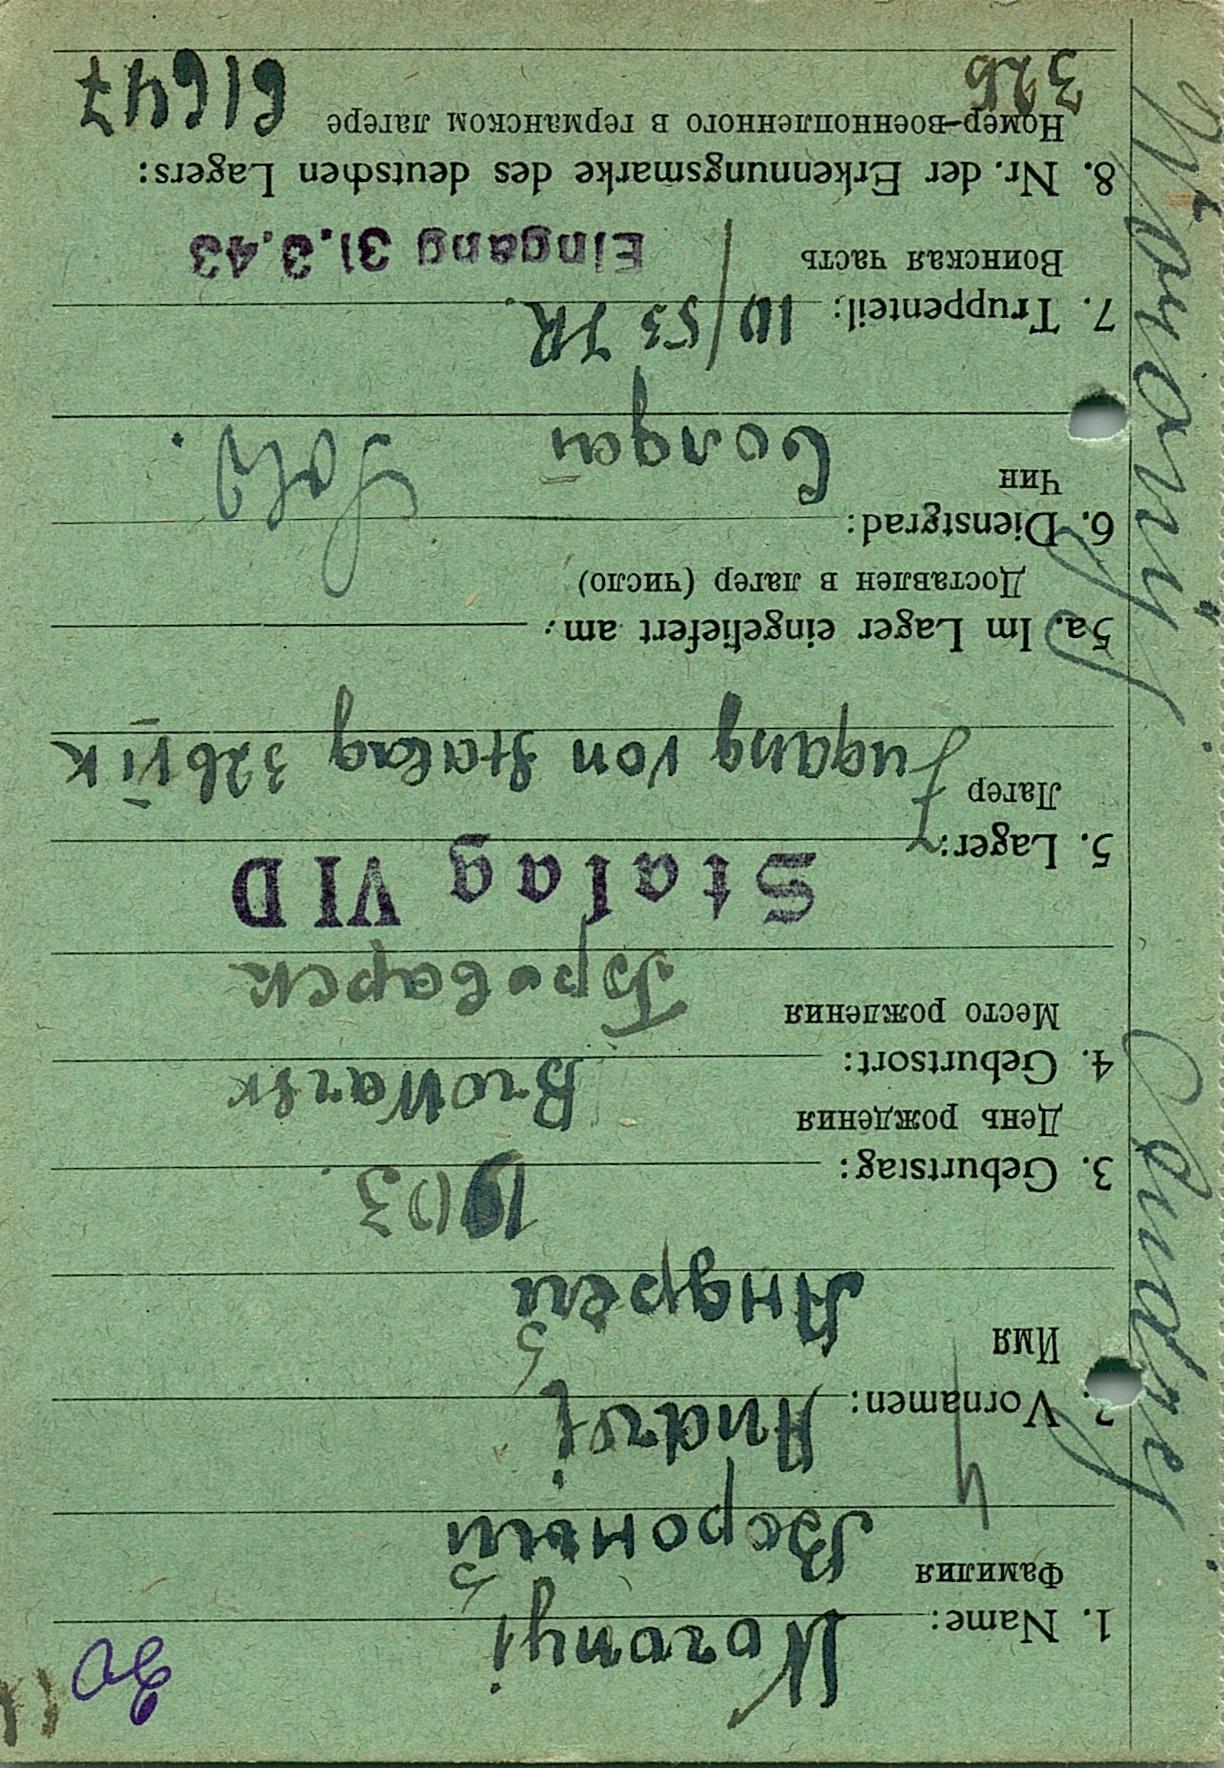 1. Name: Woronyi
Фамилия Вороный
2. Vornamen: Andrej
Имя Андрей
3. Geburtstag: 1903
День рождения
4. Geburtsort: Browarsk
Место рождения
Stalag VI D
5. Lager: Zugang von Stalag 326 VI K
Лагер
5a. Im Lager eingeliefert am:
Доставлен в лагер (число)
6. Dienstgrad: Sold.
Чин Солдат
7. Truppenteil: 10/53 JR.
Воинская часть Eingang 31.3.43
8. Nr. der Erkennungsmarke des deutschen Lagers:
Номер-военнопленного в германском лагере 61647
326
Woronyj Andrej